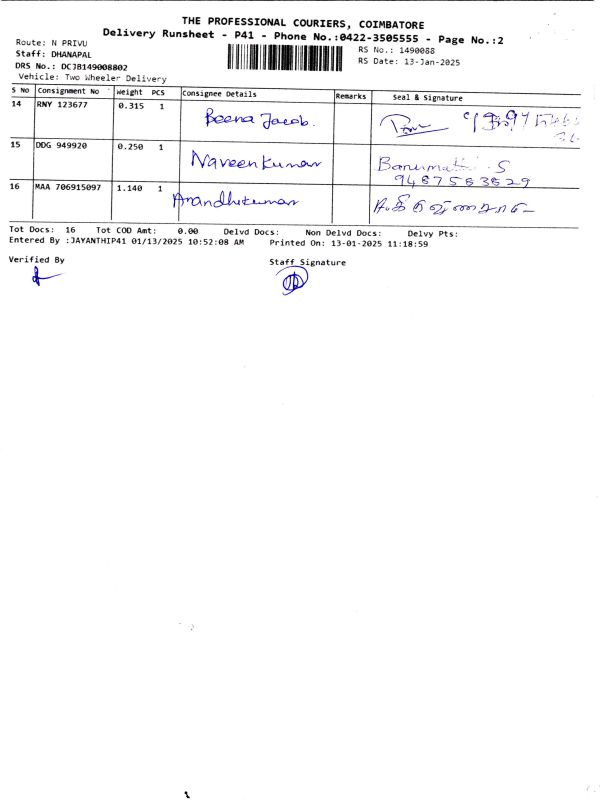 THE PROFESSIONAL COURIERS, COIMBATORE
Delivery Runsheet - P41 - Phone No.:0422-3505555 - Page No.:2
Route: N PRIVU
RS No.: 1490088
Staff: DHANAPAL
RS Date: 13-Jan-2025
DRS No.: DCJB149008802
Vehicle: Two Wheeler Delivery
S No Consignment No Weight PCS Consignee Details Remarks Seal & Signature
14 RNY 123677 0.315 1 Beena Jacob.
15 DDG 949920 0.250 1 Naveen Kumar Banumathi S
9487583829
16 MAA 706915097 1.140 1 Anandhkumar
Tot Docs: 16 Tot COD Amt: 0.00 Delvd Docs: Non Delvd Docs: Delvy Pts:
Entered By :JAYANTHIP41 01/13/2025 10:52:08 AM Printed On: 13-01-2025 11:18:59
Verified By Staff Signature